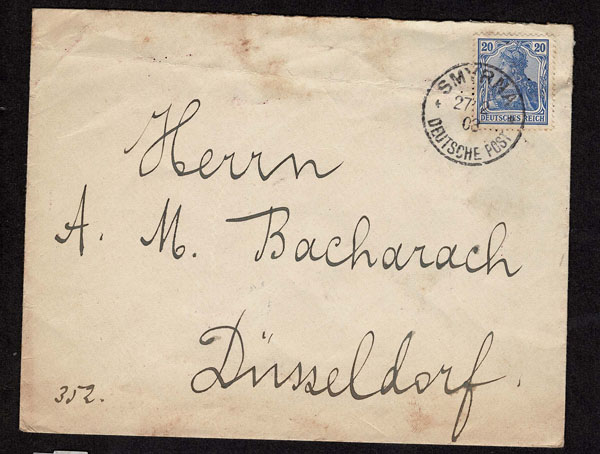 20 20
DEUTSCHES REICH
SMYRNA
27
DEUTSCHE POST
Herrn
A. M. Bacharach
Düsseldorf.
352.